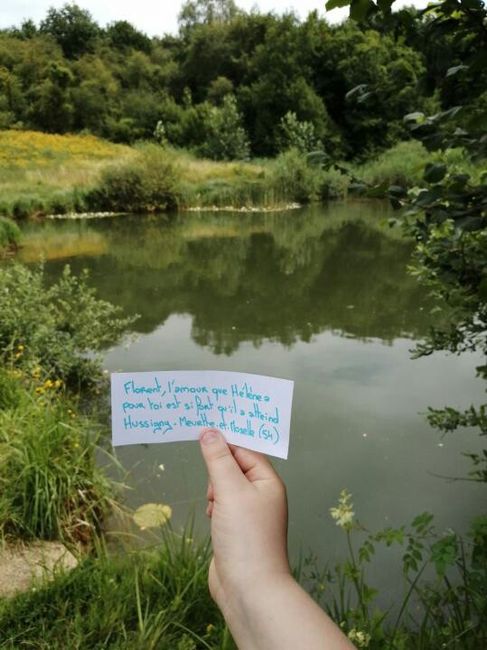 Florent, l'amour que Hélène a
pour toi est si fort qu'il a atteind
Hussigny - Meurthe-et-Moselle (54)